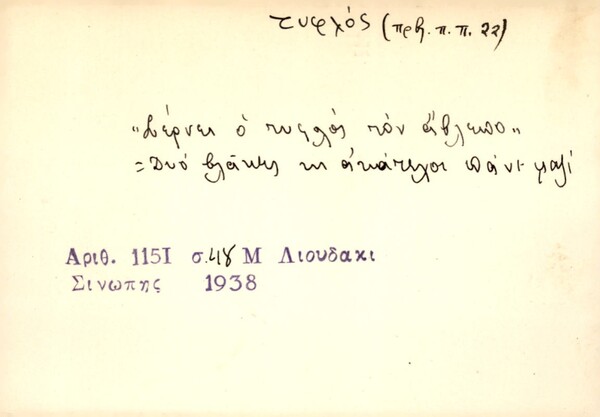 τυφλός (πρβ. π. π. 22)
"Σέρνει ὁ τυφλὸς τὸν ἄβλεπο"
= Δυό βλάκες κι ἀκάτεχοι πᾶνε μαζί
Αριθ. 1151 σ. 48 Μ Λιουδακι
Σινωπης 1938